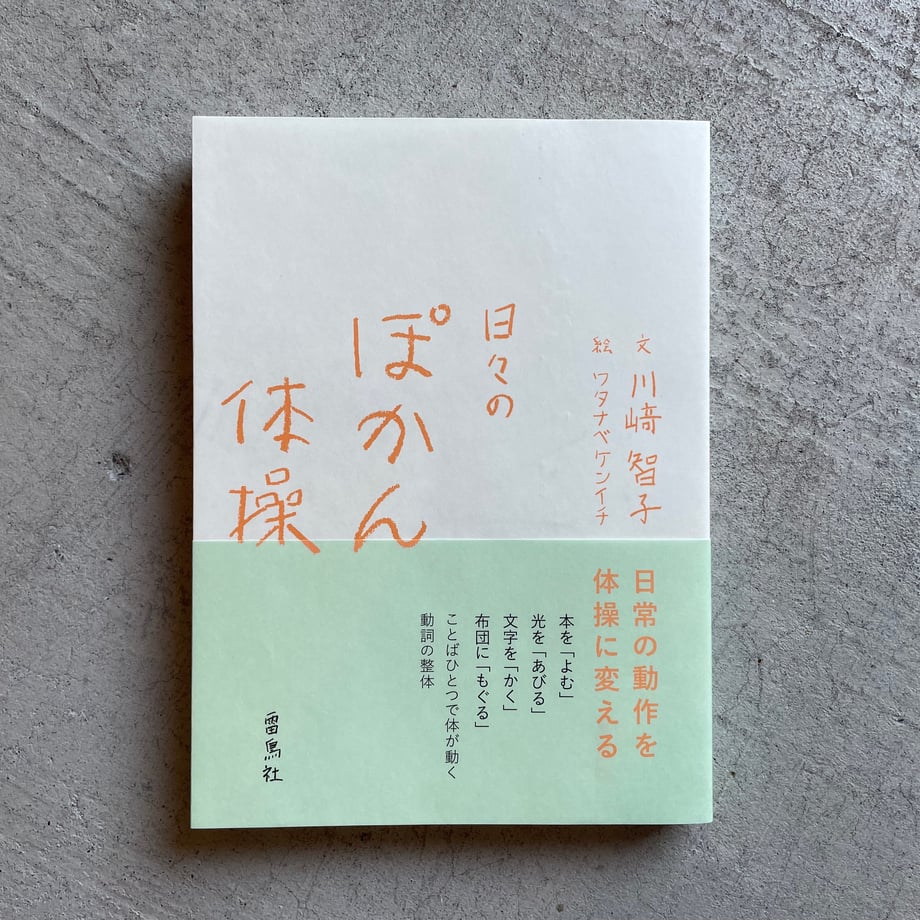 日々の
ぽかん
体操
文 川﨑智子
絵 ワタナベケンイチ
日常の動作を
体操に変える
本を「よむ」
光を「あびる」
文字を「かく」
布団に「もぐる」
ことばひとつで体が動く
動詞の整体
雷鳥社